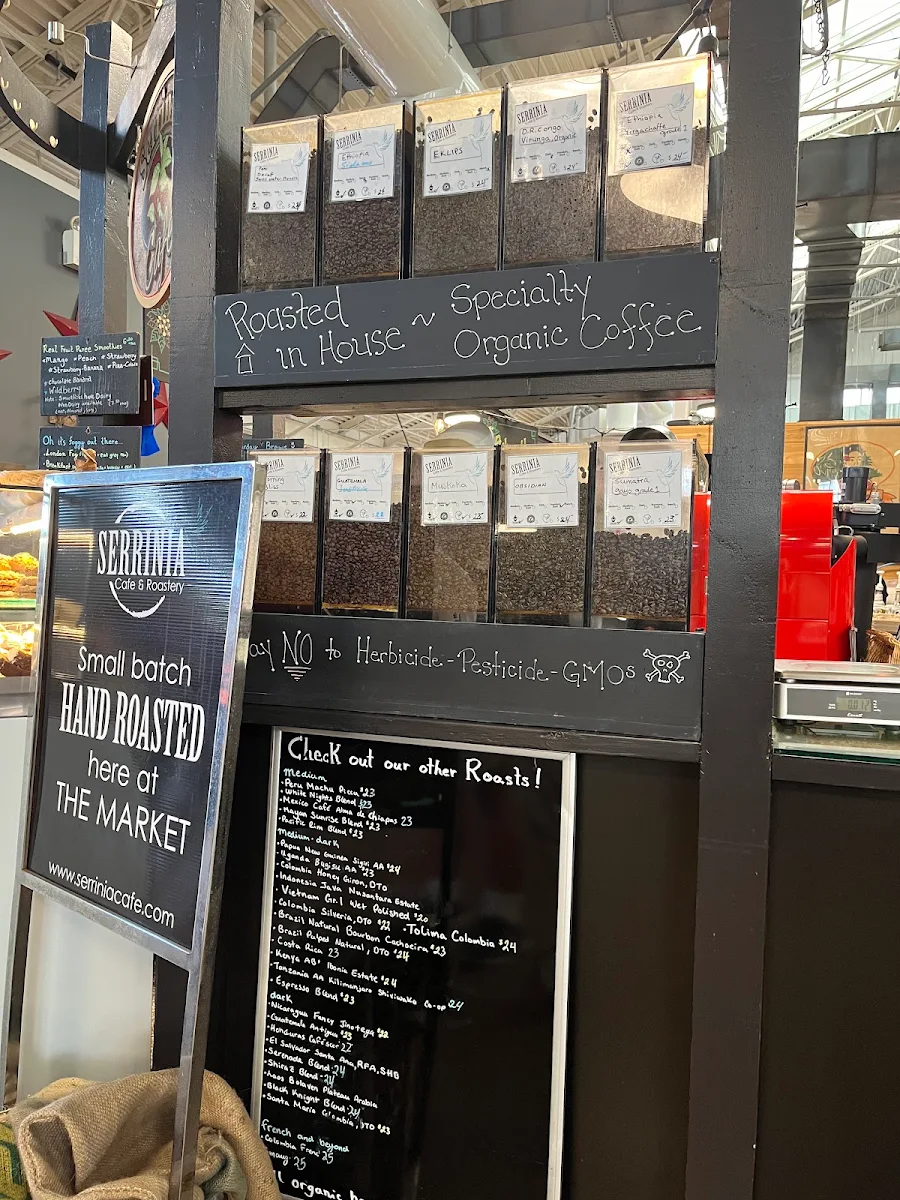 SERRINIA
Peru
Decaf
Swiss water
$24
SERRINIA
Ethiopia
Sidamo
$24
SERRINIA
EKLIPS
$24
SERRINIA
D.R. Congo
Virunga, Organic
$24
SERRINIA
Ethiopia
Yirgachaffe
grade 1
$24
Roasted in House ~ Specialty Organic Coffee
Real Fruit Puree Smoothies
•Mango •Peach •Strawberry
•Strawberry-Banana •Pina-Colada
•chocolate Banana
•Wildberry
Oh its foggy out there...
•London Fog
SERRINIA
$22
SERRINIA
GUATEMALA
SERRINIA
Muskoka
$23
SERRINIA
OBSIDIAN
$24
SERRINIA
Sumatra
gayo grade 1
$23
ay NO to Herbicide-Pesticide-GMOs
SERRINIA
Cafe & Roastery
Small batch
HAND ROASTED
here at
THE MARKET
www.serriniacafe.com
Check out our other Roasts!
medium
•Peru Machu Picu $23
•White Nights Blend $23
•Mexico Café Alma de Chiapas 23
•Mayan Sunrise Blend $23
•Pacific Rim Blend $23
medium-dark
•Papua New Guinea Sigri AA $24
•Uganda Bugisu AA $23
•Colombia Honey Giron, DTO
•Indonesia Java Nusantara Estate
•Vietnam Gr.1 Wet Polished $20
•Colombia Silveria, DTO $22 •Tolima Colombia $24
•Brazil Natural Bourbon Cachoeira $23
•Brazil Pulped Natural, DTO $24
•Costa Rica 23
•Kenya AB Ibonia Estate $24
•Tanzania AA Kilimanjaro Shiviwaka Co-op 24
•Espresso Blend $23
dark
•Nicaragua Fancy Jinotega $22
•Guatemala Antigua $23
•Honduras Caféscor 22
•El Salvador Santa Ana, RFA, SHB
•Serenade Blend 24
•Shiraz Blend 24
•Laos Bolaven Plateau Arabia
•Black Knight Blend 24
•Santa Maria Colombia, DTO $23
french and beyond
•Colombia Frenc 25
25
l organic